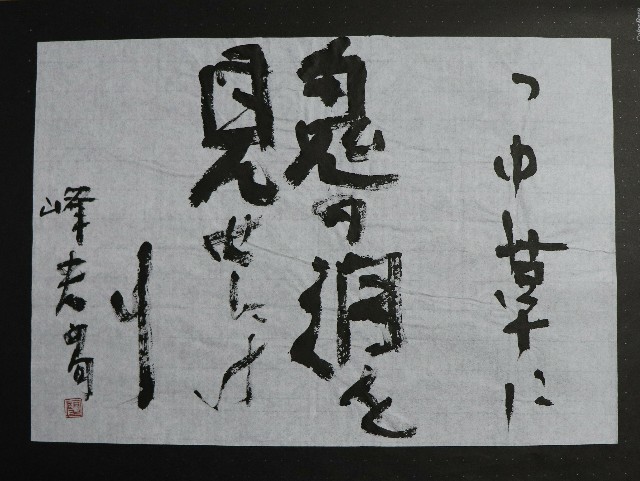 つゆ草に
鬼の泪を
見せにけ
り
峰